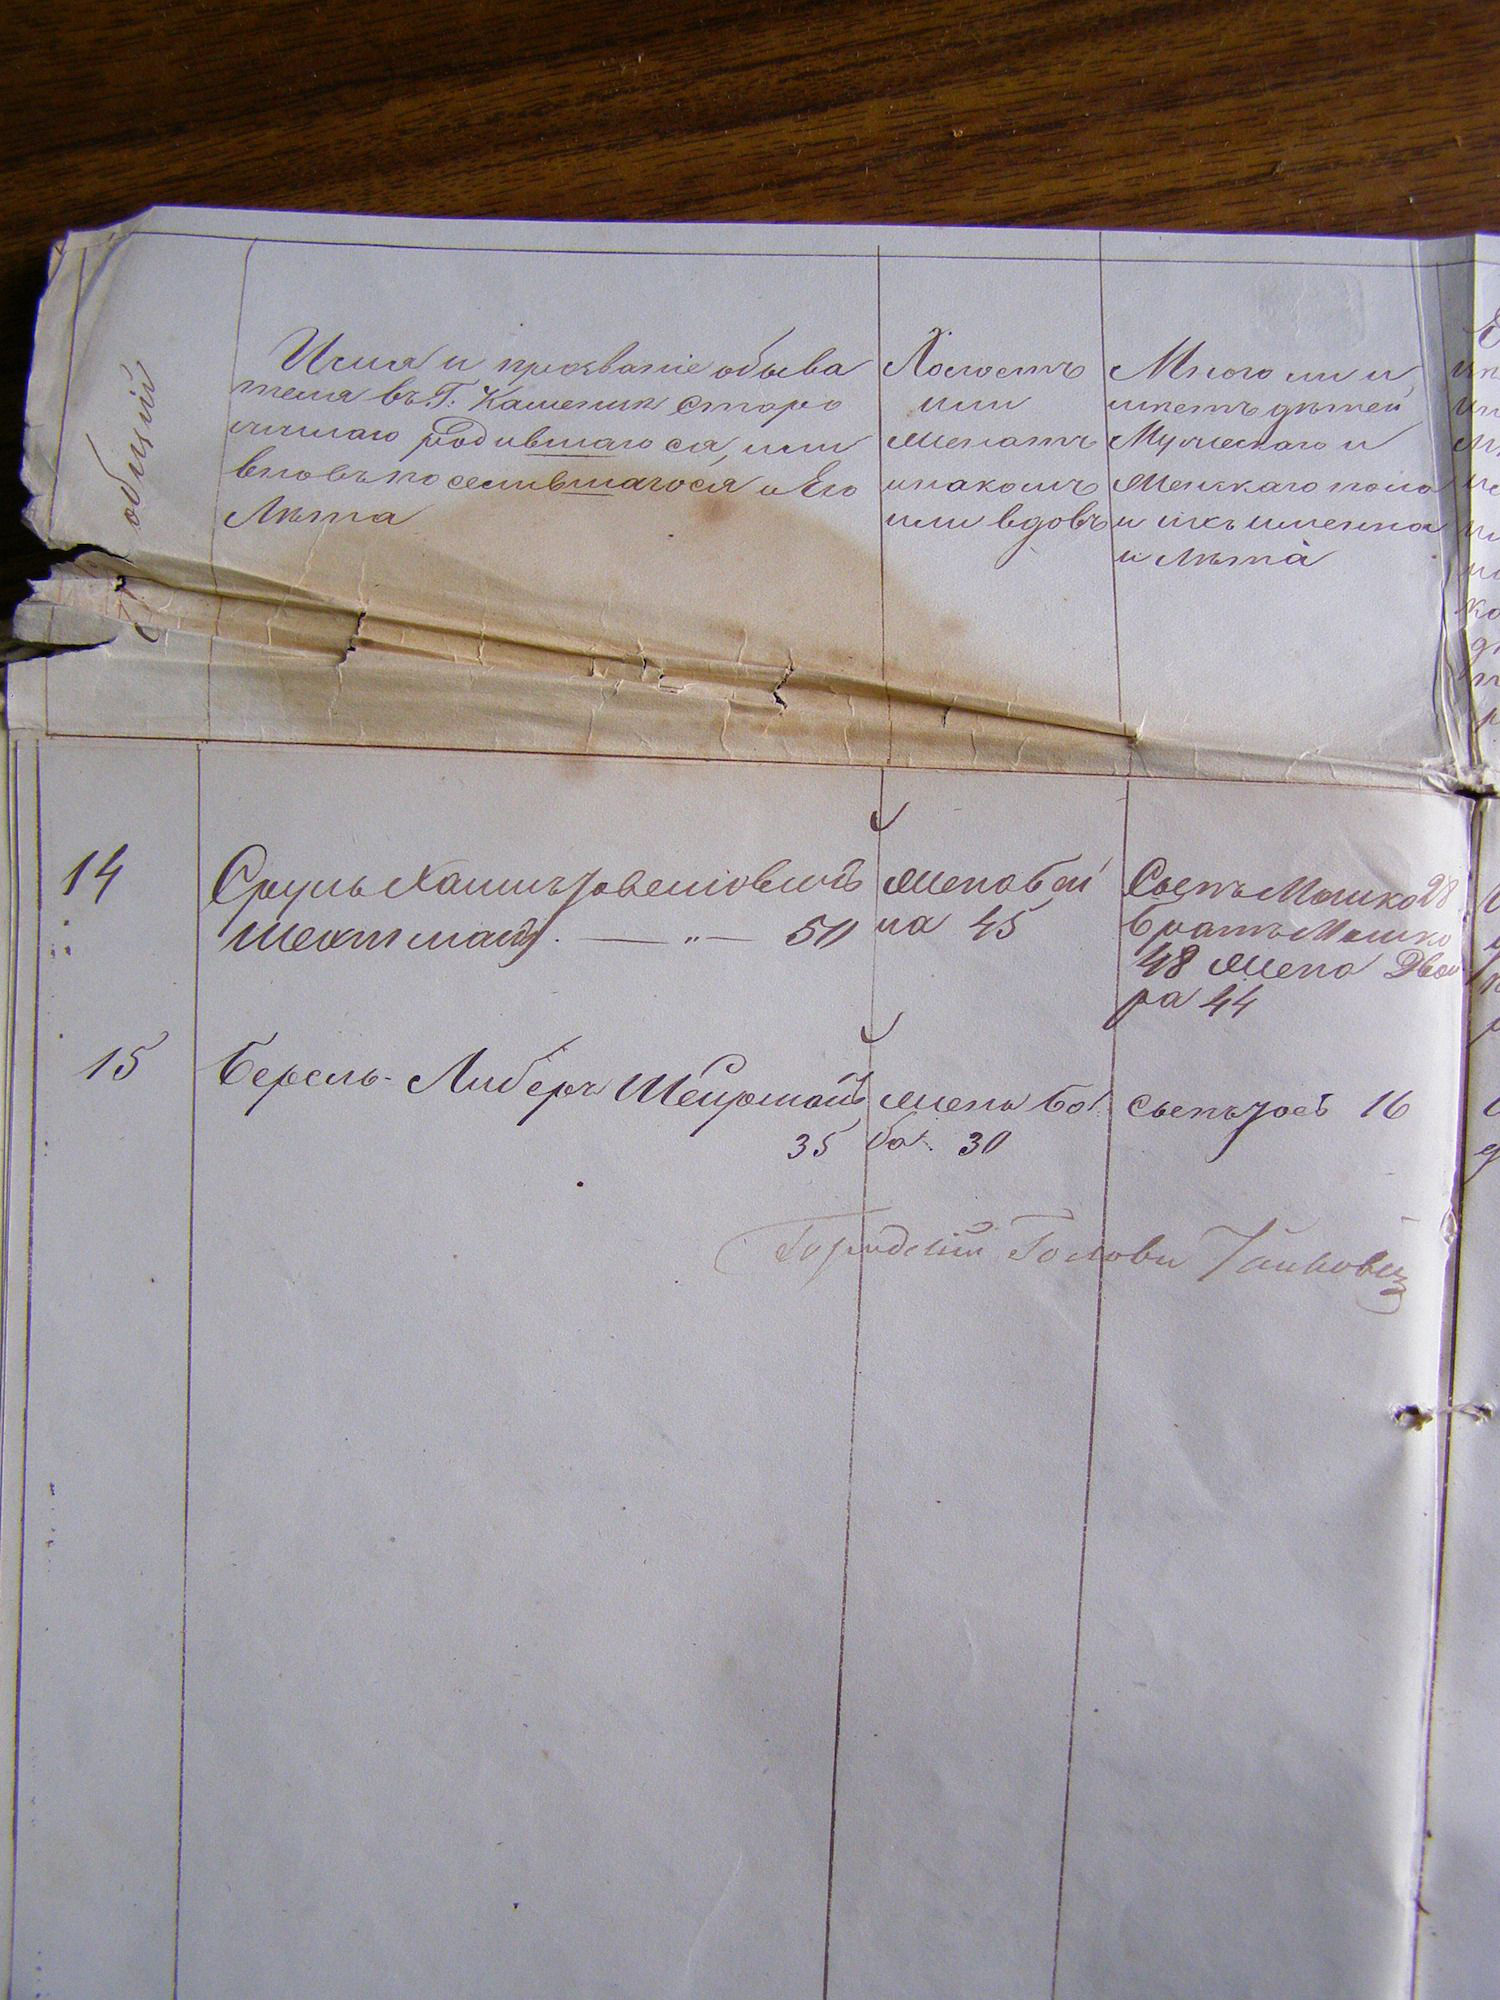 общий
Имя и прозваніе обыва
теля въ Г. Каменик старо
личнаго родившагося, или
вновь поселившагося и Его
Лѣта
Холостъ
или
женатъ
и на комъ
или вдовъ
Много ли и
имѣетъ дѣтей
Мужескаго и
Женскаго пола
и ихъ имена
и Лѣта
14
Сруль Хаимъ
Шехтманъ. — „ — 50
жена Бей
на 45
Сынъ Мошко 28
братъ Мошко
48 жена Двой
ра 44
15
Берель-Либеръ
35
жена
ба. 30
сынъ Іось 16
Городской Голова